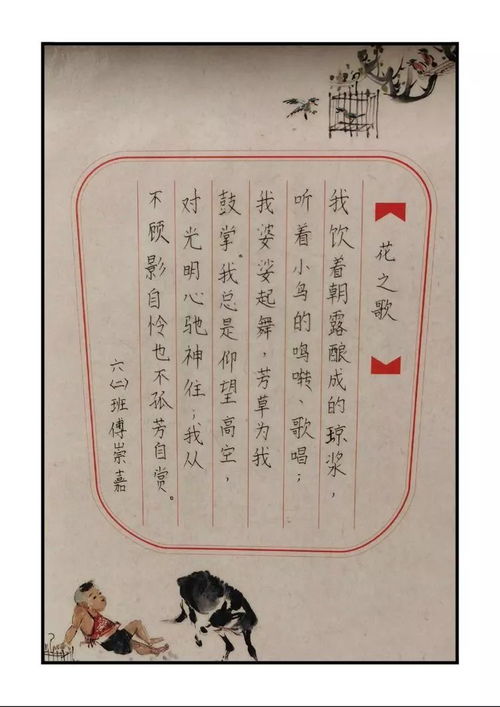 花之歌
我饮着朝露酿成的琼浆，
听着小鸟的鸣啭、歌唱；
我婆娑起舞，芳草为我
鼓掌。我总是仰望高空，
对光明心驰神往；我从
不顾影自怜也不孤芳自赏。
六（二）班傅崇嘉